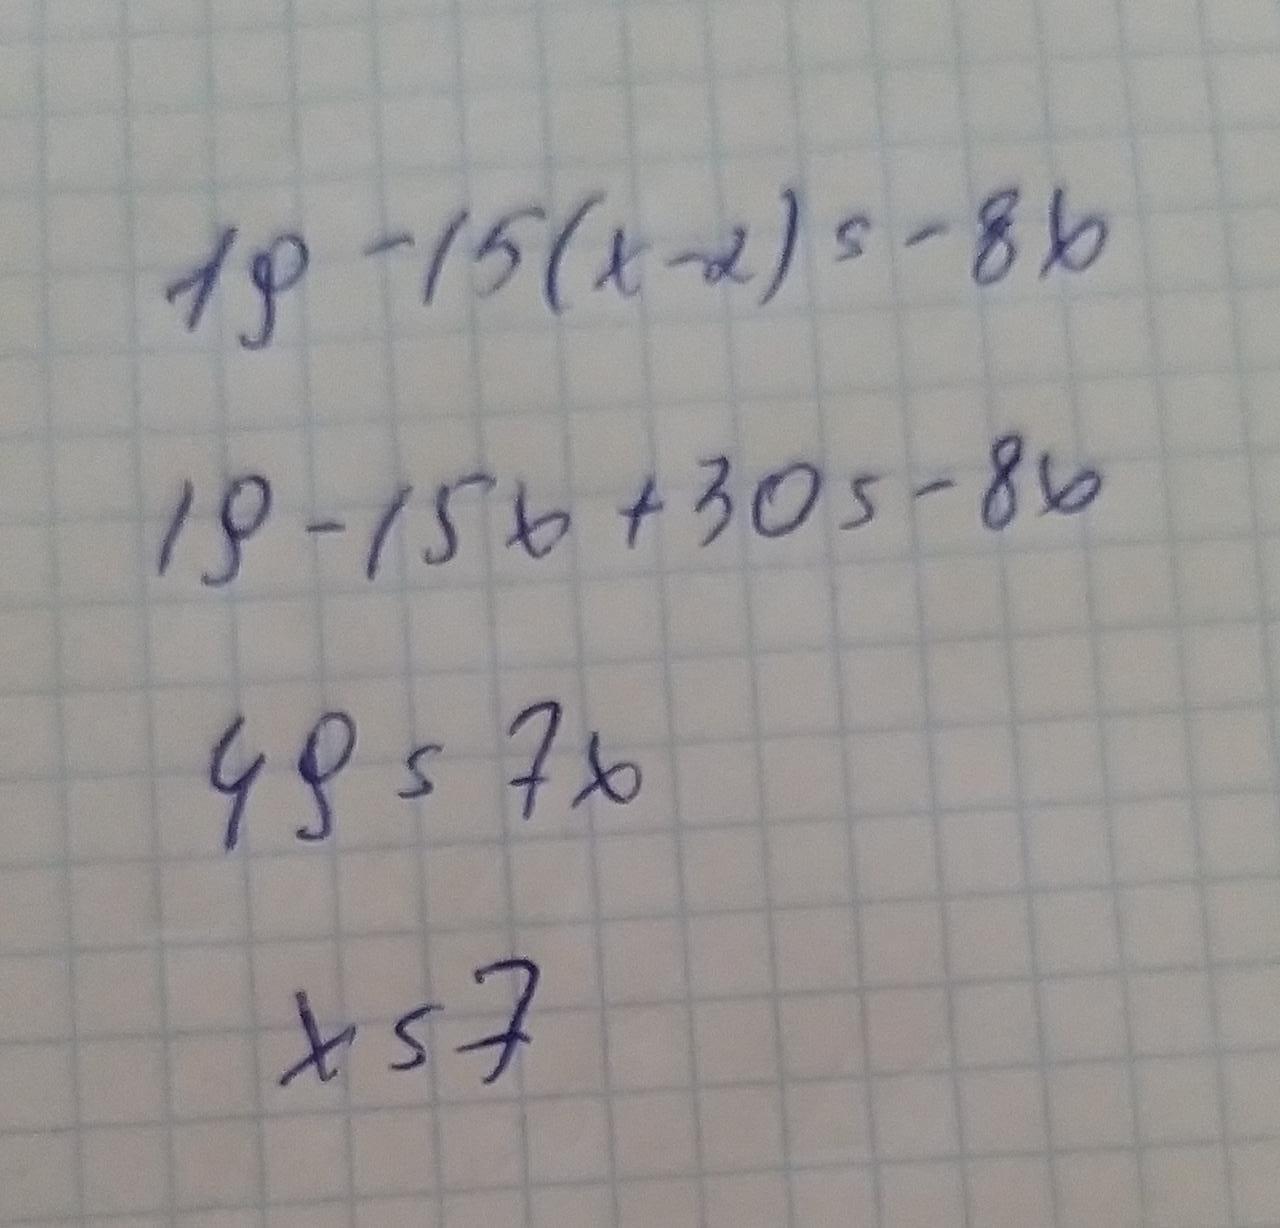 19 - 15(x-2) = -8x
19 - 15x + 30 = -8x
49 = 7x
x = 7